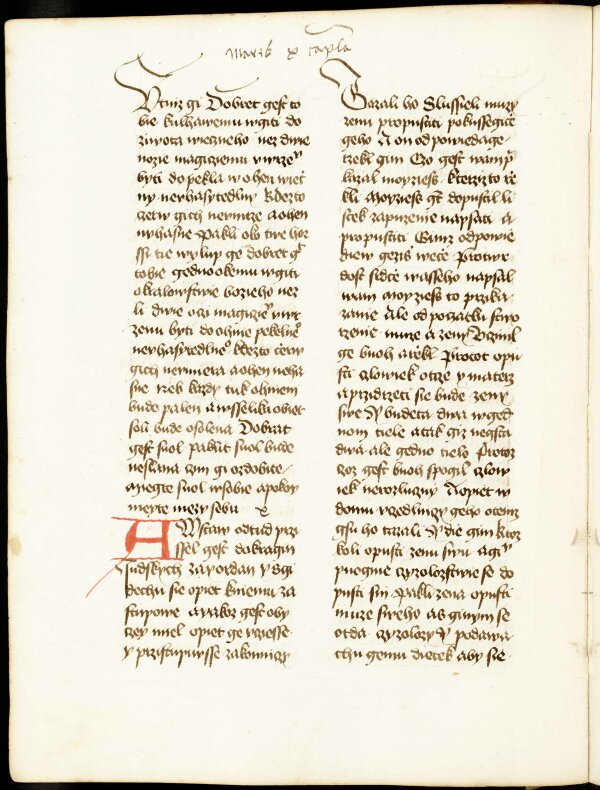 Marik x capla
Vtniz gi Dobret gest to
bie kulhawemu wgiti do
ziwota wieczneho nez dwie
nozie magiciemu vwrzen
byti do pekla w ohen wiet
ny nevhasytedlny kdezto
czerw gich nevmrze a ohen
nvhasne Pakli oko twe hor
ssi tie wylup ge dobret gest
tobie gednookemu wgiti
okralowstwie bozieho nez
li dwie oczi magiciem vwr
zenu byti do ohnie pekelneho
nevhasytedlneho kdezto czerw
gich nevmiera a ohen neha
sne Neb kazdy tuk ohniem
bude palen a wsselika obiet
soli bude osolena Dobrat
gest suol pakliit suol bude
neslana czim gi ozdobite
miegte suol wsobie a pokoy
meyte mezy sebu x
A Wstaw odtud przi
ssel gest do kragin
sudskych zayordan y sgi
dechu sie opiet kniemu za
stupowe a yakoz gest oby
czey miel opiet ge vcziesse
y przistupiwsse zakonniczy
Tazali ho Slussieli muzy
zenu propustiti pokussegice
geho A on odpowiedage
rzekl gim Czo gest wam przi
kazal moyziess Kterzizto rze
kli Moyziess gt dopustil li
stek zapuzenie napsati a
propustiti Gimz odpowie
diew gezis wece Protwr
dost sidce wasseho napsal
wam moyziess to przika
zanie Ale od poczatku stwo
rzenie muze a zenu Vczinil
ge buoh a rzekl Protot opu
sti czlowiek otcze y materz
a przidrzeti sie bude zeny
swe Y budeta dwa w ged
nom tiele a tak giz negsta
dwa ale gedno tielo Protoz
czoz gest buoh spogil czlow
iek nerozluczuy A opiet w
domu vczedlnicy geho otemz
gsu ho tazali Y die gim ktoz
koli opusti zenu swu a giny
puogme czyzolozstwie se do
pusti sni Pakli zena opusti
muze sweho a s ginym se
otda czyzolozy Y podawa
chu gemu dietek aby sie